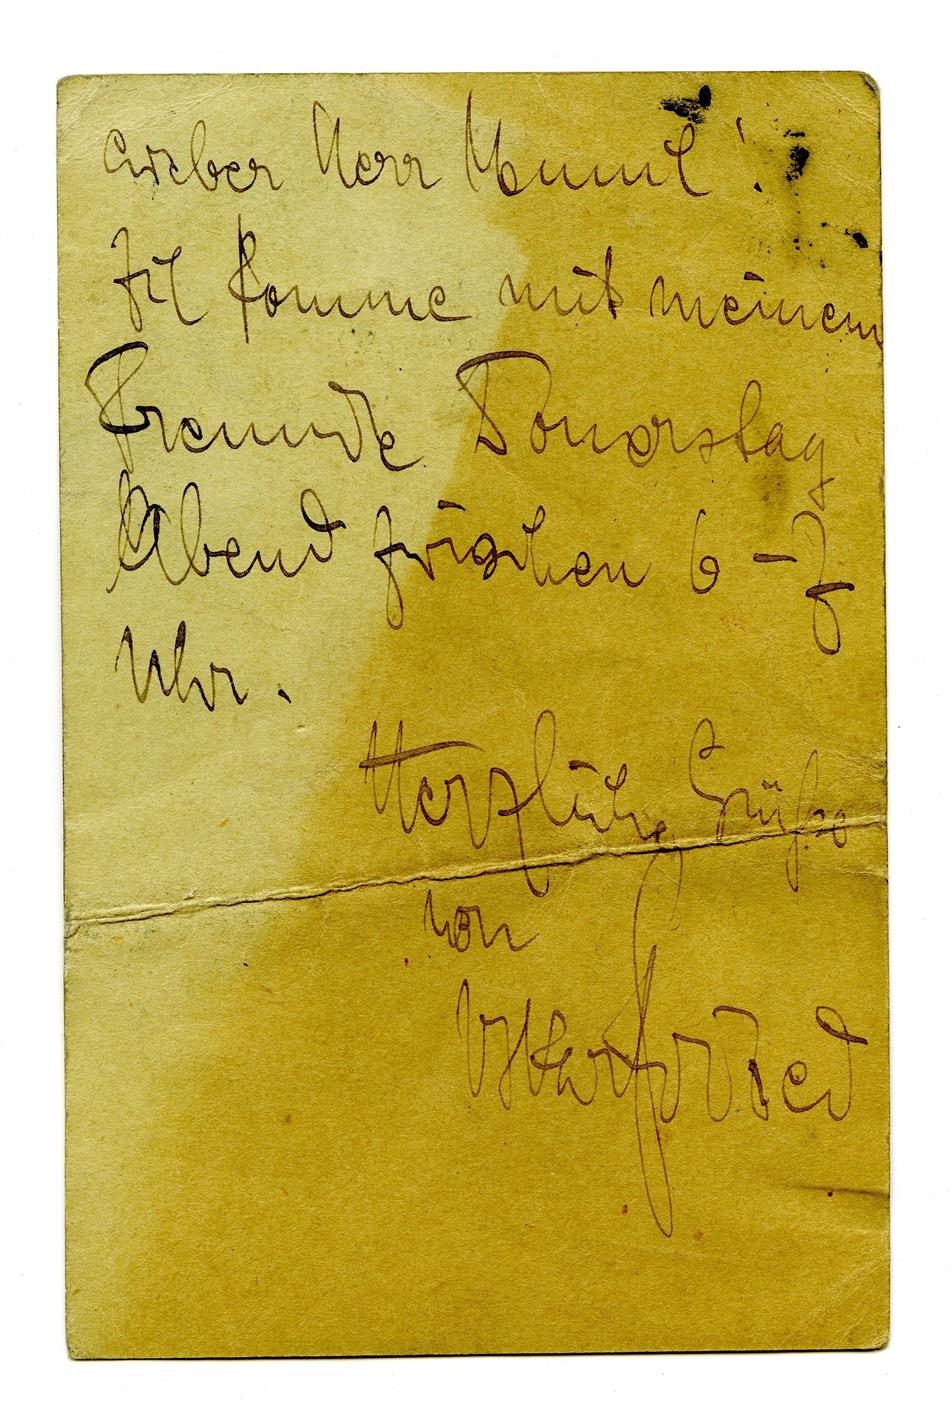 Lieber Herr
Ich komme mit meinem
Freunde Donerstag
Abend zwischen 6 – 7
Uhr.
Herzliche Grüße
von